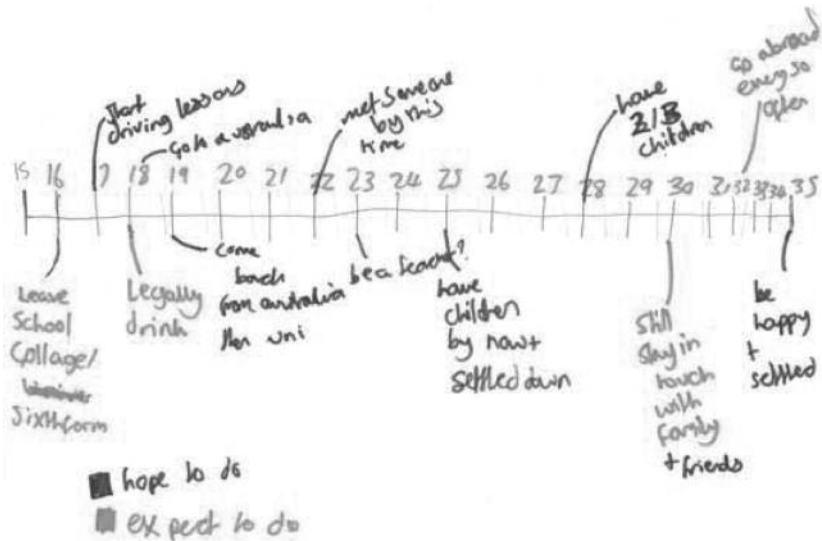 Go abroad
every so
often
Start
driving lessons
Go to australia
met someone
by this
time
have
2/3
children
15 16 7 18 19 20 21 22 23 24 25 26 27 28 29 30 31 32 33 34 35
Leave
School
Collage/
Sixthform
Legally
drink
come
back
from australia
then uni
be a teacher?
have
children
by now +
settled down
Still
stay in
touch
with
family
+ friends
be
happy
+
settled
hope to do
expect to do